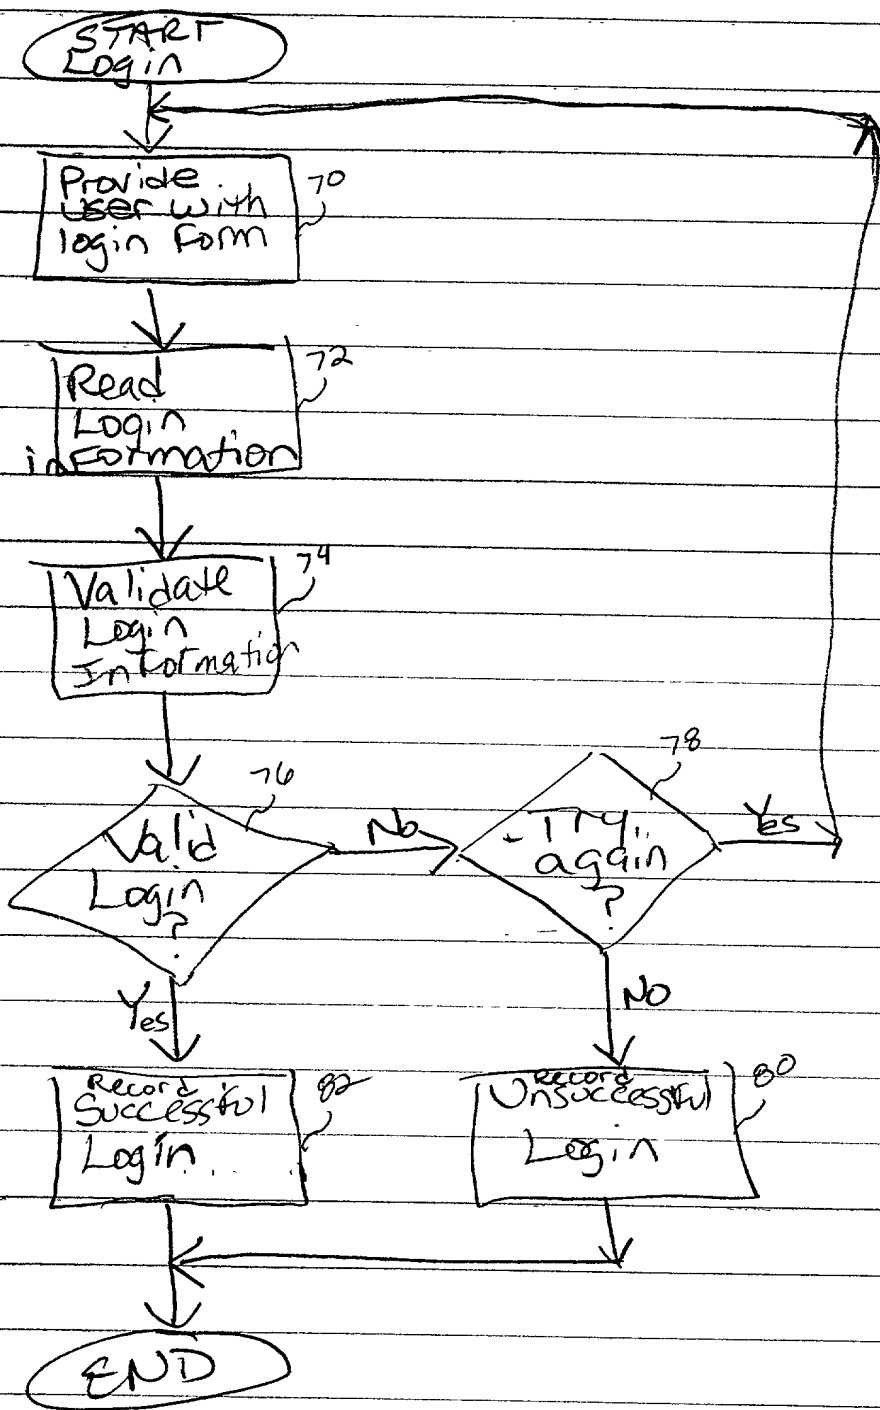 START
Login
Provide
user with
login Form
70
Read
Login
inFormation
72
Validate
Login
Information
74
Valid
Login
?
76
No
Try
again
?
78
Yes
Yes
No
Record
Successful
Login
82
Record
Unsuccessful
Login
80
END